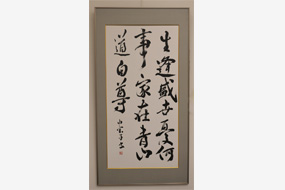 生逢盛世憂何
事家在青山
道自尊